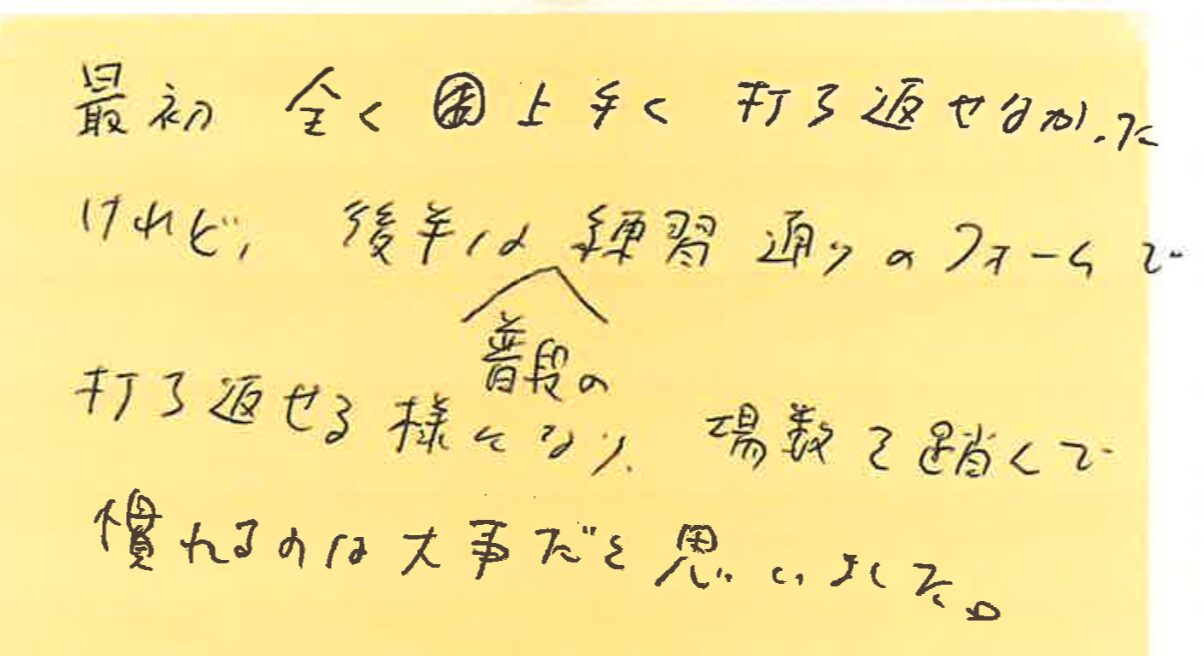 最初 全く上手く 打ち返せなかった
けれど、後半は普段の練習通りのフォームで
打ち返せる様になり、場数を踏んで
慣れるのは大事だと思いました。